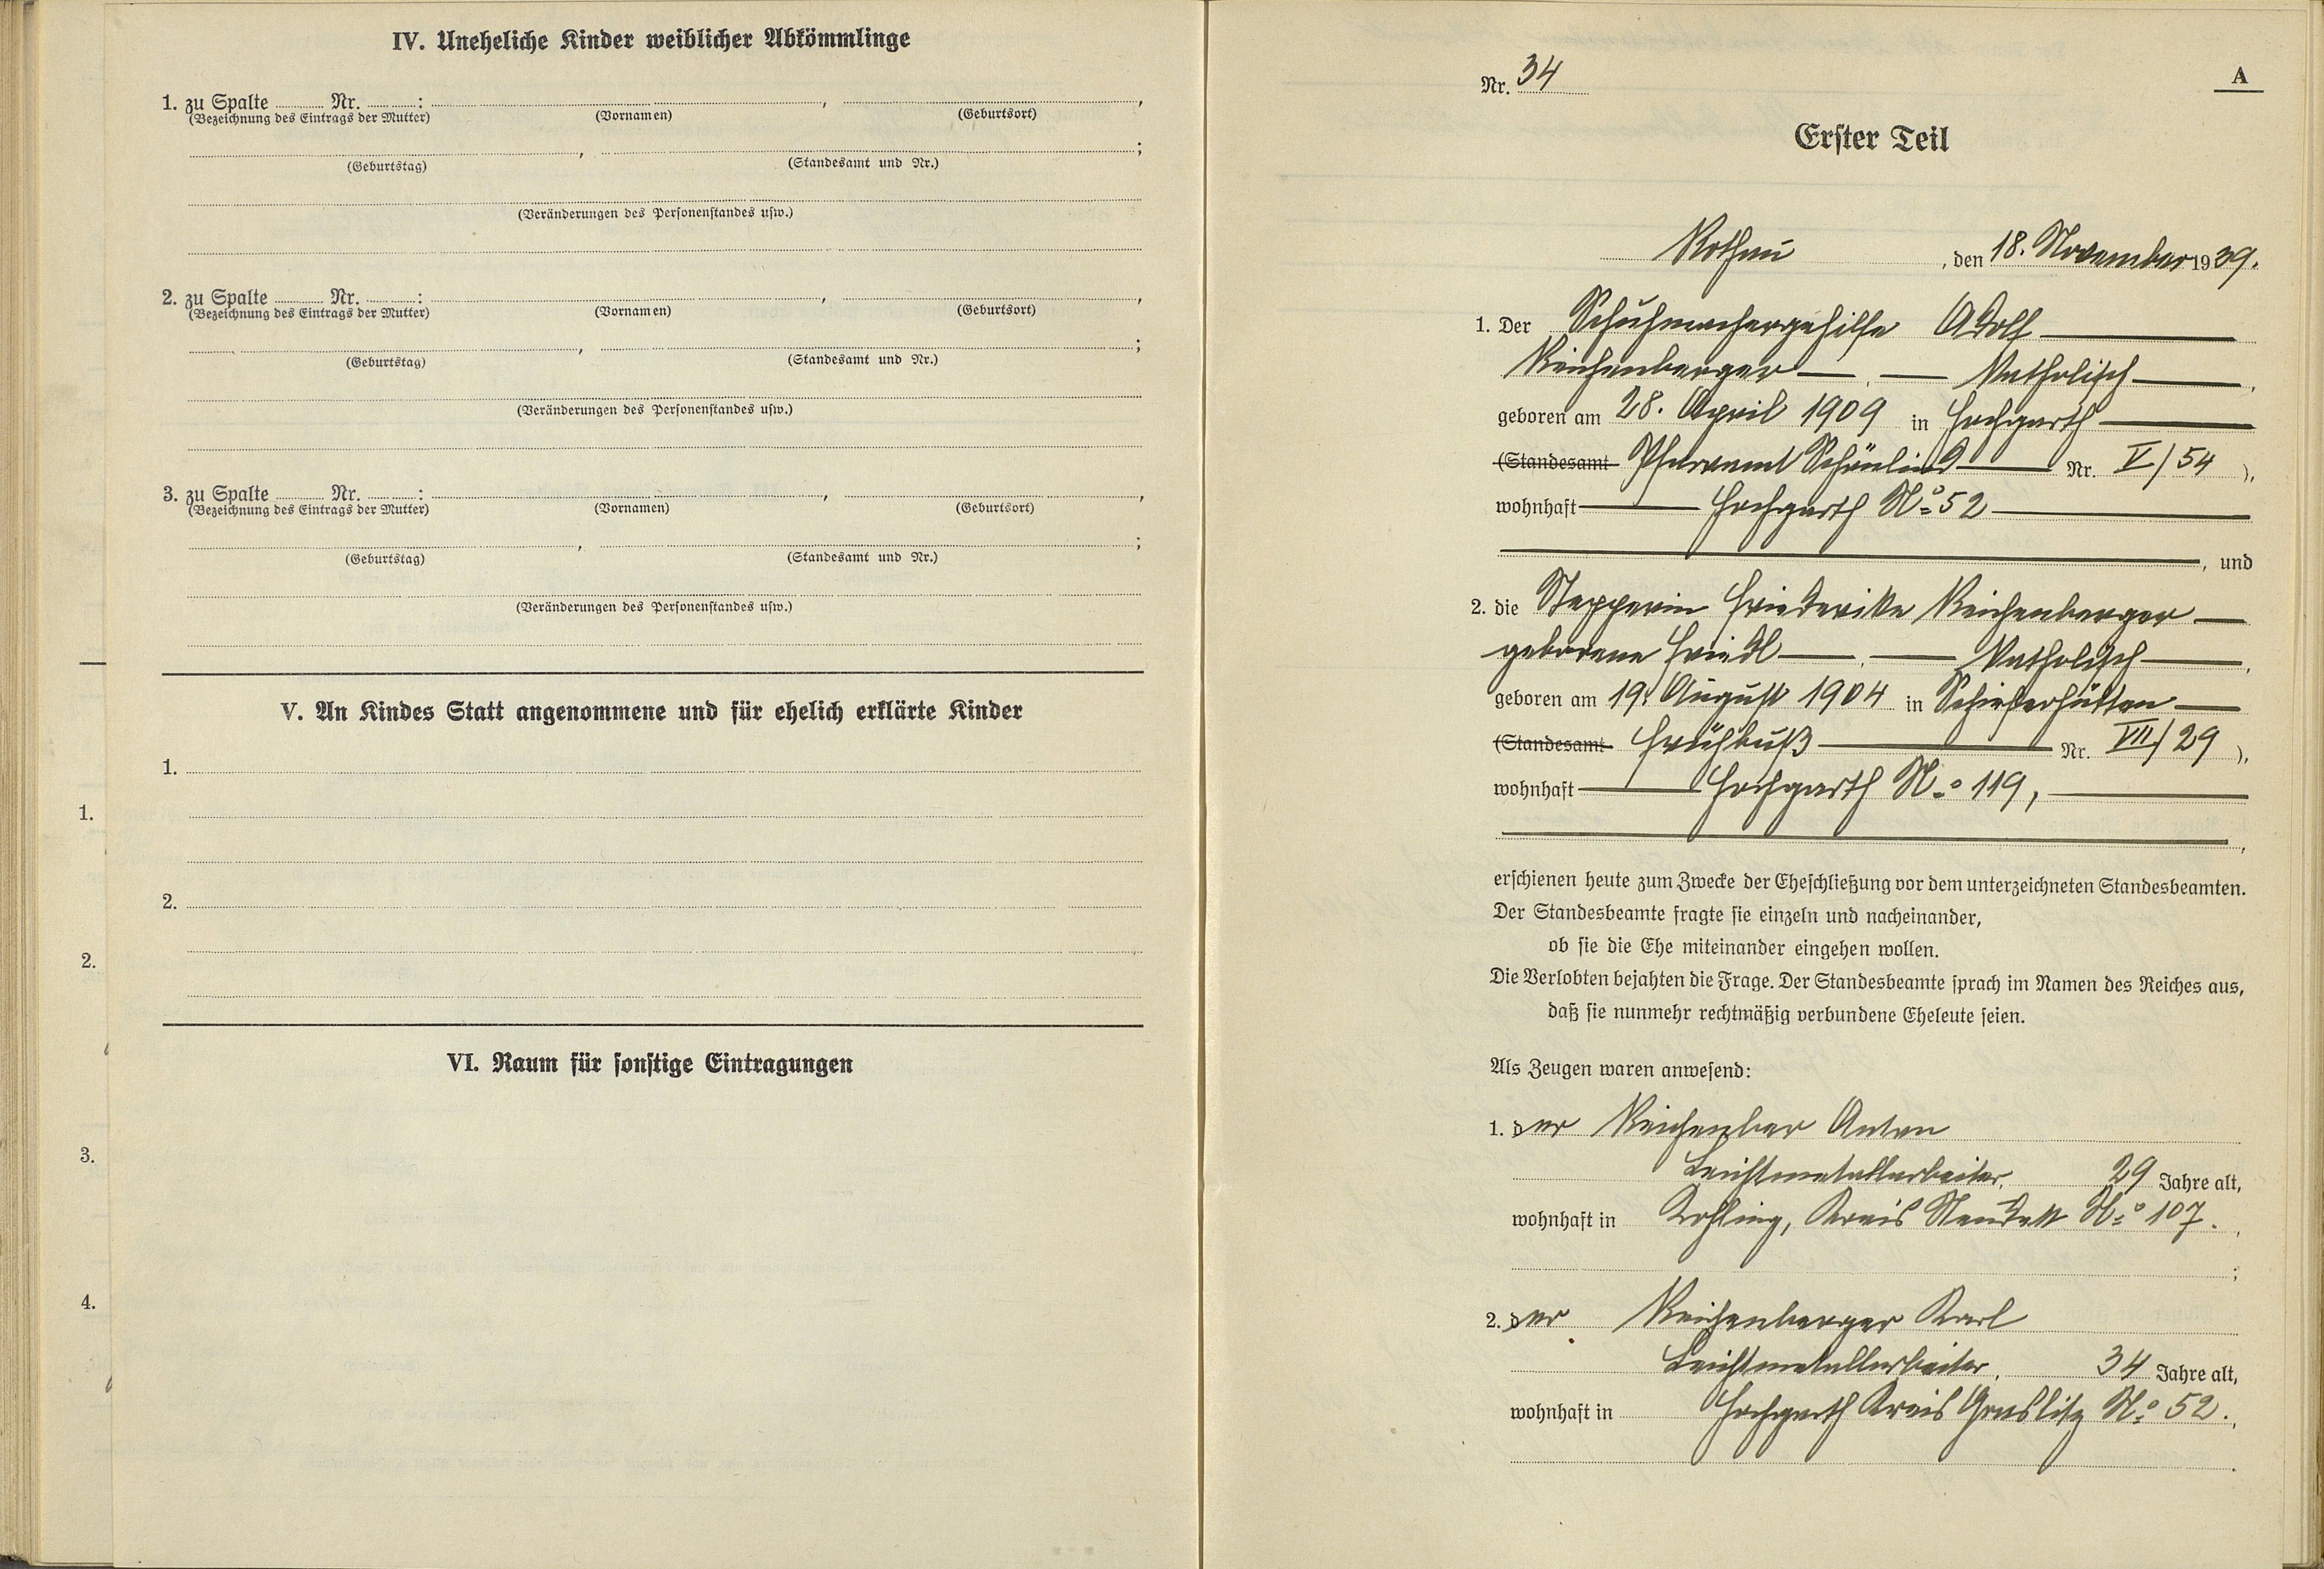 IV. Uneheliche Kinder weiblicher Abkömmlinge
1. zu Spalte ........ Nr. ........: , ,
(Bezeichnung des Eintrags der Mutter) (Vornamen) (Geburtsort)
, ;
(Geburtstag) (Standesamt und Nr.)
(Veränderungen des Personenstandes usw.)
2. zu Spalte ........ Nr. ........: , ,
(Bezeichnung des Eintrags der Mutter) (Vornamen) (Geburtsort)
, ;
(Geburtstag) (Standesamt und Nr.)
(Veränderungen des Personenstandes usw.)
3. zu Spalte ........ Nr. ........: , ,
(Bezeichnung des Eintrags der Mutter) (Vornamen) (Geburtsort)
, ;
(Geburtstag) (Standesamt und Nr.)
(Veränderungen des Personenstandes usw.)
V. An Kindes Statt angenommene und für ehelich erklärte Kinder
1.
1.
2.
2.
VI. Raum für sonstige Eintragungen
3.
4.
Nr. 34
A
Erster Teil
Rothau, den 18. November 1939.
1. Der Schuhmachergehilfe Adolf
Reichenberger — , — Katholisch — ,
geboren am 28. April 1909 in Hochgarth
(Standesamt Pfarramt Schönlind — Nr. V/54 ),
wohnhaft — Hochgarth No 52 —
, und
2. die Stepperin Friederike Reichenberger —
geborene Friedl — , — Katholisch — ,
geboren am 19. August 1904 in Schieferhütten —
(Standesamt Frühbuß — Nr. VII/29 ),
wohnhaft — Hochgarth No 119, —
,
erschienen heute zum Zwecke der Eheschließung vor dem unterzeichneten Standesbeamten.
Der Standesbeamte fragte sie einzeln und nacheinander,
ob sie die Ehe miteinander eingehen wollen.
Die Verlobten bejahten die Frage. Der Standesbeamte sprach im Namen des Reiches aus,
daß sie nunmehr rechtmäßig verbundene Eheleute seien.
Als Zeugen waren anwesend:
1. der Anton
Leichtmetallarbeiter, 29 Jahre alt,
wohnhaft in Kohling, Kreis Neudek No 107. ,
;
2. der Reichenberger Karl
Leichtmetallarbeiter, 34 Jahre alt,
wohnhaft in Hochgarth Kreis Graslitz No 52. ,
.